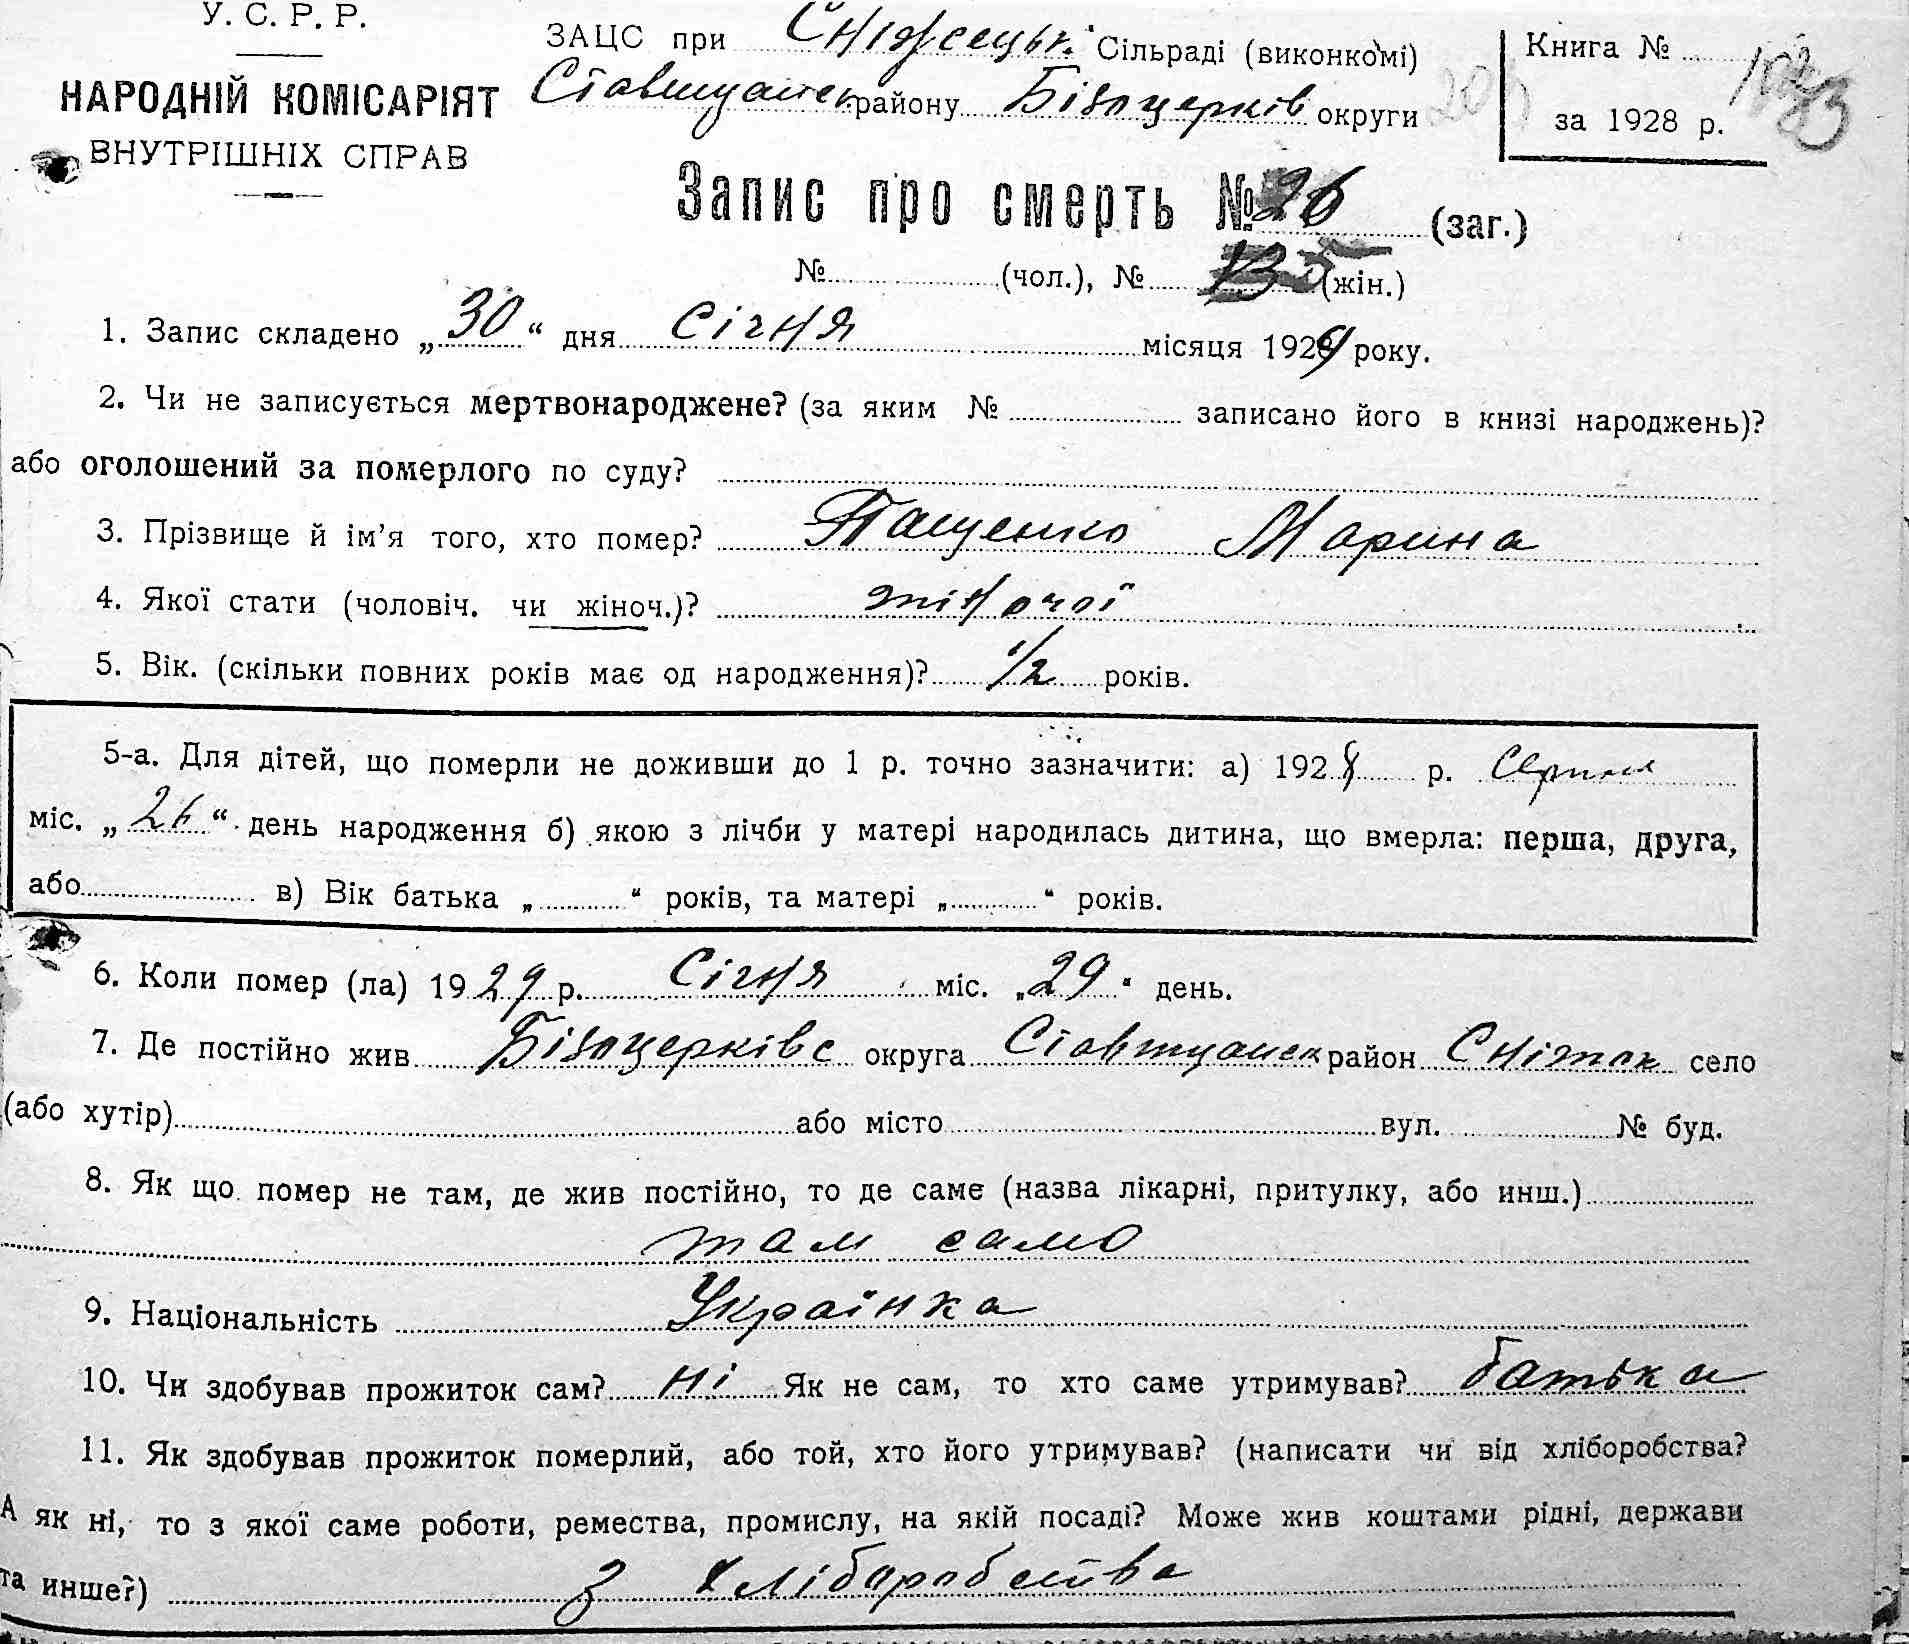 У. С. Р. Р.
НАРОДНІЙ КОМІСАРІЯТ
ВНУТРІШНІХ СПРАВ
ЗАЦС при Сніжецькі Сільраді (виконкомі)
Ставищанськ району Білоцерків округи
Книга №
за 1928 р.
Запис про смерть № 26 (заг.)
№ (чол.), № 13 (жін.)
1. Запис складено „30“ дня Січня місяця 1929 року.
2. Чи не записується мертвонароджене? (за яким № записано його в книзі народжень)?
або оголошений за померлого по суду?
3. Прізвище й ім'я того, хто помер? Пащенко Марина
4. Якої стати (чоловіч. чи жіноч.)? жіночої
5. Вік. (скільки повних років має од народження)? 1/2 років.
5-а. Для дітей, що померли не доживши до 1 р. точно зазначити: а) 1928 р. Серпня
міс. „26“ день народження б) якою з лічби у матері народилась дитина, що вмерла: перша, друга,
або в) Вік батька „ “ років, та матері „ “ років.
6. Коли помер (ла) 1929 р. Січня міс. „29“ день.
7. Де постійно жив Білоцерківс округа Ставищанськ район Сніжок село
(або хутір) або місто вул. № буд.
8. Як що помер не там, де жив постійно, то де саме (назва лікарні, притулку, або инш.)
там само
9. Національність Українка
10. Чи здобував прожиток сам? ні Як не сам, то хто саме утримував? батька
11. Як здобував прожиток померлий, або той, хто його утримував? (написати чи від хліборобства?
А як ні, то з якої саме роботи, ремества, промислу, на якій посаді? Може жив коштами рідні, держави
та инше?) З хлібаробства